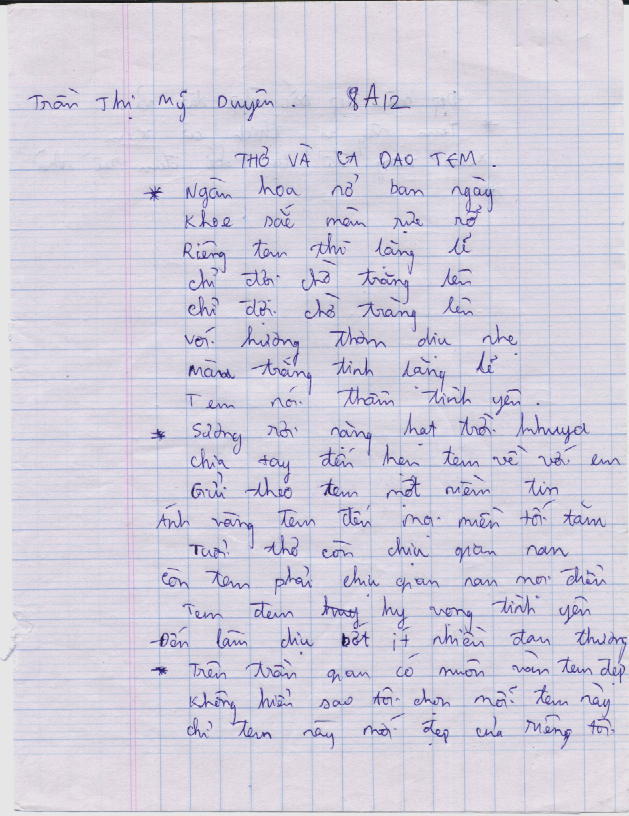 Trần Thị Mỹ Duyên. 8A12
THƠ VÀ CA DAO TEM.
* Ngàn hoa nở ban ngày
Khoe sắc màu rực rỡ
Riêng tem thì lặng lẽ
chỉ đợi chờ trăng lên
chỉ đợi chờ trăng lên
với hương thơm dịu nhẹ
Màu trắng tinh lặng lẽ
Tem nói thầm tình yêu.
* Sương rơi nặng hạt trời khuya
chia tay đến hẹn tem về với em
Gửi theo tem một niềm tin
Ánh vàng tem đến mọi miền tối tăm
Tuổi thơ còn chịu gian nan
Còn tem phải chịu gian nan mọi điều
Tem đem hy vọng tình yêu
Đến làm dịu bớt ít nhiều đau thương
* Trên trần gian có muôn vàn tem đẹp
Không hiểu sao tôi chọn mỗi tem này
chỉ tem này mới đẹp của riêng tôi.